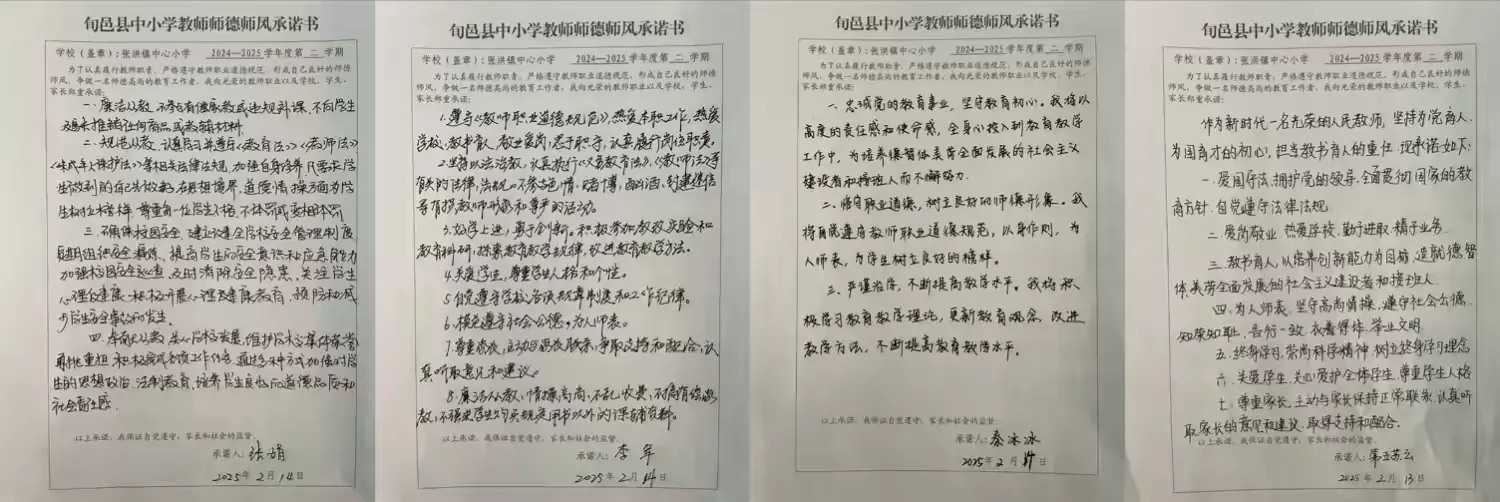 旬邑县中小学教师师德师风承诺书
学校（盖章）：张洪镇中心小学 2024—2025学年度第 二 学期
为了认真履行教师职责，严格遵守教师职业道德规范，形成自己良好的师德
师风，争做一名师德高尚的教育工作者，我向光荣的教师职业以及学校、学生、
家长郑重承诺：
一、廉洁从教，不参与有偿家教或违规补课，不向学生
推销任何商品或教辅材料
二、规范从教，认真学习并遵守《教育法》《教师法》
《未成年人保护法》等相关法律法规，加强自身修养，凡要求学
生做到的自己先做到，在思想境界、道德情操方面为学
生树立榜样，尊重每一位学生人格，不体罚或变相体罚
三、确保校园安全，建立健全学校安全管理制度
定期组织安全演练，提高学生的安全意识和应急能力
加强校园安全巡查，及时消除安全隐患，关注学生
心理健康，积极开展心理健康教育，预防和减
少学生安全事故的发生。
四、
生的思想政治、法制教育，培养学生良好的道德品质和
社会责任感
以上承诺，我保证自觉遵守，家长和社会的监督。
承诺人：张娟
2025年2月14日
旬邑县中小学教师师德师风承诺书
学校（盖章）：张洪镇中心小学 2024—2025学年度第 二 学期
为了认真履行教师职责，严格遵守教师职业道德规范，形成自己良好的师德
师风，争做一名师德高尚的教育工作者，我向光荣的教师职业以及学校、学生、
家长郑重承诺：
1.遵守《教师职业道德规范》，热爱本职工作，热爱
学校，教书育人，敬业爱岗，忠于职守，认真履行岗位职责。
2.坚持以法治教，认真执行《义务教育法》、《教师法》等
有关的法律，法规。不参与色情、赌博、酗酒、封建迷信
等有损教师形象和尊严的活动。
3.好学上进，勇于创新。积极参加教改实验和
教育科研，探索教育教学规律，改进教育教学方法。
4.关爱学生，尊重学生人格和个性。
5.自觉遵守学校各项规章制度和工作纪律。
6.模范遵守社会公德，为人师表。
7.尊重家长，主动与家长联系，争取支持和配合，认
真听取意见和建议。
8.廉洁从教，情操高尚，不乱收费，不搞有偿家
教，不强求学生购买规定用书以外的课辅资料。
以上承诺，我保证自觉遵守，家长和社会的监督。
承诺人：李军
2025年2月14日
旬邑县中小学教师师德师风承诺书
学校（盖章）：张洪镇中心小学 2024—2025学年度第 二 学期
为了认真履行教师职责，严格遵守教师职业道德规范，形成自己良好的师德
师风，争做一名师德高尚的教育工作者，我向光荣的教师职业以及学校、学生、
家长郑重承诺：
一、忠诚党的教育事业，坚守教育初心。我将以
高度的责任感和使命感，全身心投入到教育教学
工作中，为培养德智体美劳全面发展的社会主义
建设者和接班人而不懈努力。
二、恪守职业道德，树立良好的师德形象。我
将自觉遵守教师职业道德规范，以身作则，为
人师表，为学生树立良好的榜样。
三、严谨治学，不断提高教学水平。我将积
极学习教育教学理论，更新教育观念，改进
教学方法，不断提高教育教学水平。
以上承诺，我保证自觉遵守，家长和社会的监督。
承诺人：秦冰冰
2025年2月 日
旬邑县中小学教师师德师风承诺书
学校（盖章）：张洪镇中心小学 2024—2025学年度第 二 学期
为了认真履行教师职责，严格遵守教师职业道德规范，形成自己良好的师德
师风，争做一名师德高尚的教育工作者，我向光荣的教师职业以及学校、学生、
家长郑重承诺：
作为新时代一名光荣的人民教师，坚持为党育人、
为国育才的初心，担当教书育人的重任，现承诺如下：
一．爱国守法，拥护党的领导，全面贯彻国家的教
育方针，自觉遵守法律法规
二．爱岗敬业，热爱学校，勤于进取，精于业务
三．教书育人，以培养创新能力为目标，造就德、智
体、美、劳全面发展的社会主义建设者和接班人
四．为人师表，坚守高尚情操，遵守社会公德，
知荣知耻，言行一致，衣着得体，举止文明
五．终身学习，崇尚科学精神，树立终身学习理念
六．关爱学生，关心爱护全体学生，尊重学生人格
七．尊重家长，主动与家长保持正常联系，认真听
取家长的意见和建议，取得支持和配合。
以上承诺，我保证自觉遵守，家长和社会的监督。
承诺人：第五苏云
2025年2月13日